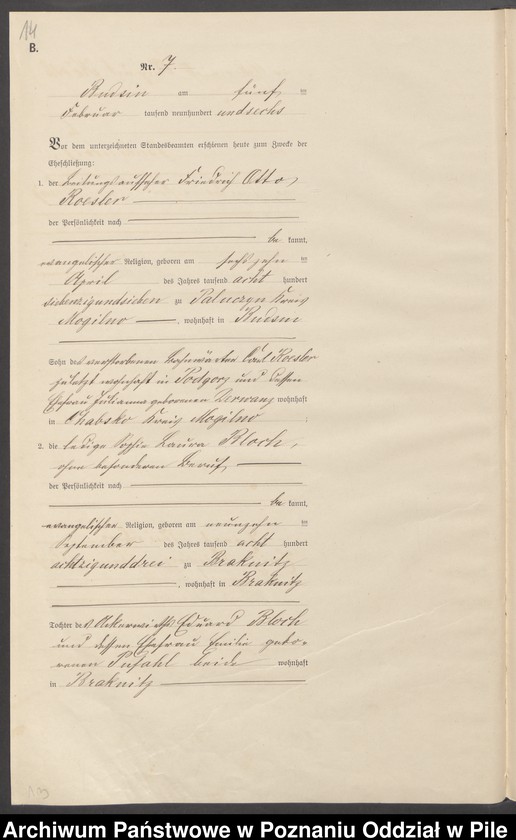 14
B.
Nr. 7.
Budsin am fünf ten
Februar tausend neunhundert und sechs
Vor dem unterzeichneten Standesbeamten erschienen heute zum Zwecke der
Eheschließung:
1. der Leitungsaufseher Friedrich Otto
Roesler
der Persönlichkeit nach
be kannt,
evangelischer Religion, geboren am sechszehn ten
April des Jahres tausend acht hundert
siebenzigundsieben zu Paluczyn Kreis
Mogilno , wohnhaft in Budsin
Sohn des verstorbenen Bahnwärter Carl Roesler
zuletzt wohnhaft in Podgorz und dessen
Ehefrau Julianna geborenen wohnhaft
in Chabsko Kreis Mogilno
2. die ledige Sophie Laura Bloch,
ohne besonderen Beruf,
der Persönlichkeit nach
be kannt,
evangelischer Religion, geboren am neunzehn ten
September des Jahres tausend acht hundert
achtzigunddrei zu Braknitz
, wohnhaft in Braknitz
Tochter des Ackerwirths Eduard Bloch
und dessen Ehefrau Emilie gebo-
renen Pufahl beide wohnhaft
in Braknitz
Archiwum Państwowe w Poznaniu Oddział w Pile